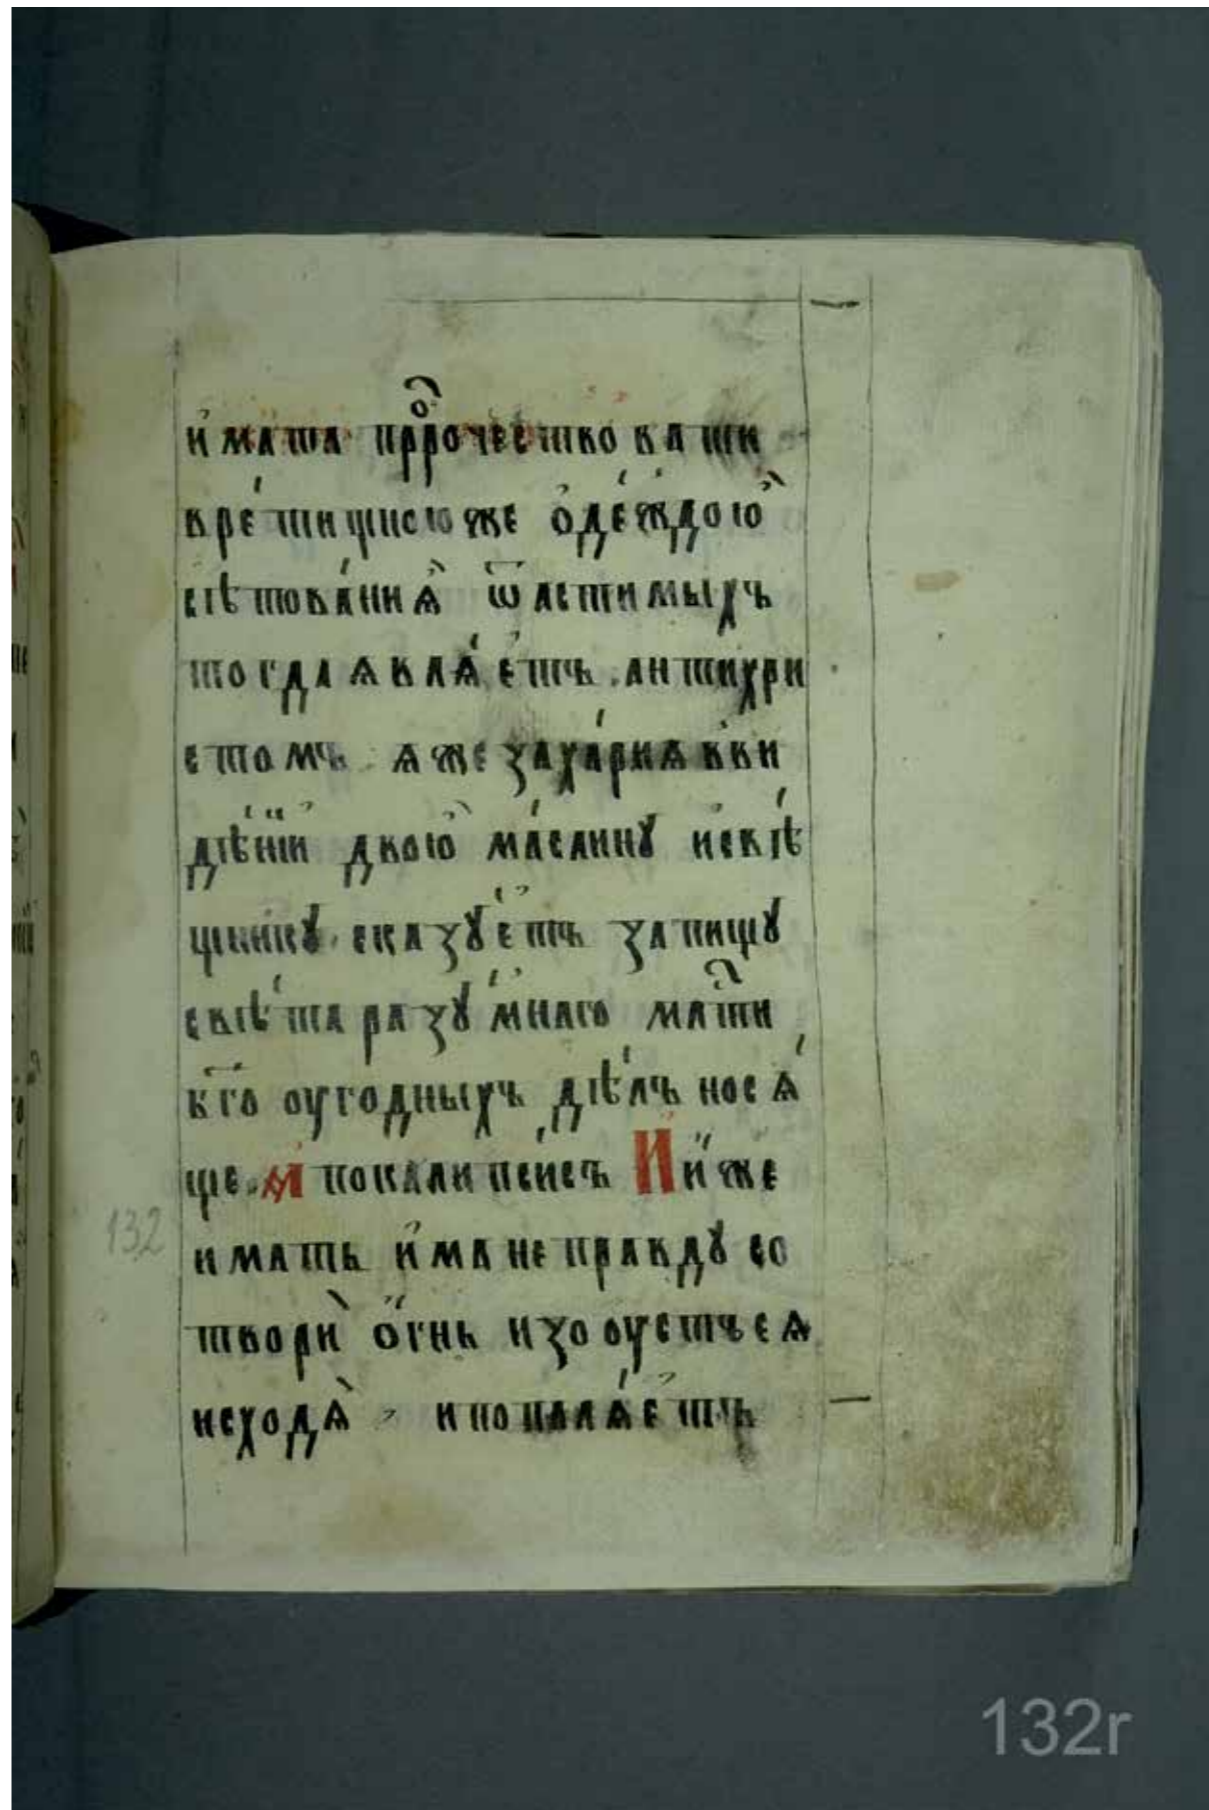 и҆мата прⷪ҇рочествовати
вре́тищисюже ѻ҆де́ждою҆
сѣтова́нїѧ҆ ѿ астимыхъ
тогда ѧвлѧ́е҆тъ антихри
стомъ ѧже заха́риѧ в̾ви
дѣ́нїи҆ двою҆ ма́слину исвѣ́
щнику сказꙋ́е҆тъ за пищꙋ
свѣ́та разꙋ́мнаго мⷭ҇ти
бг҃о оугодныхъ дѣ́лъ носѧ́
ще. Апокали́псисъ И и҆́же
имать и҆ма неправдꙋ со
твори̏ ѻ҆́гнь изо оустъсѧ
исходѧ̏ ипопалѧ́е҆тъ
132
132r